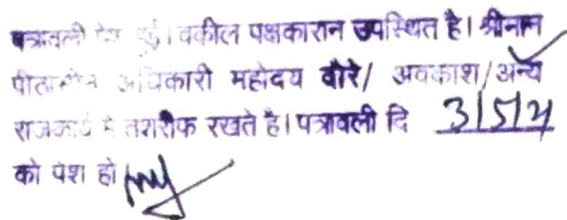 पत्रावली पेश हुई। वकील पक्षकारान उपस्थित है। श्रीमान
पीठासीन अधिकारी महोदय दौरे/ अवकाश/अन्य
राजकार्य में तशरीफ रखते है। पत्रावली दि 3/5/24
को पेश हो